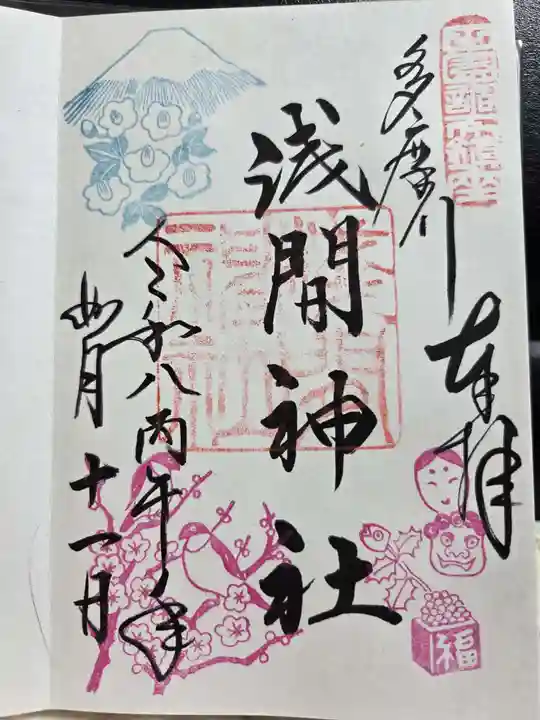 多摩川
奉拝
浅間神社
令和八丙午年
如月十一日
福